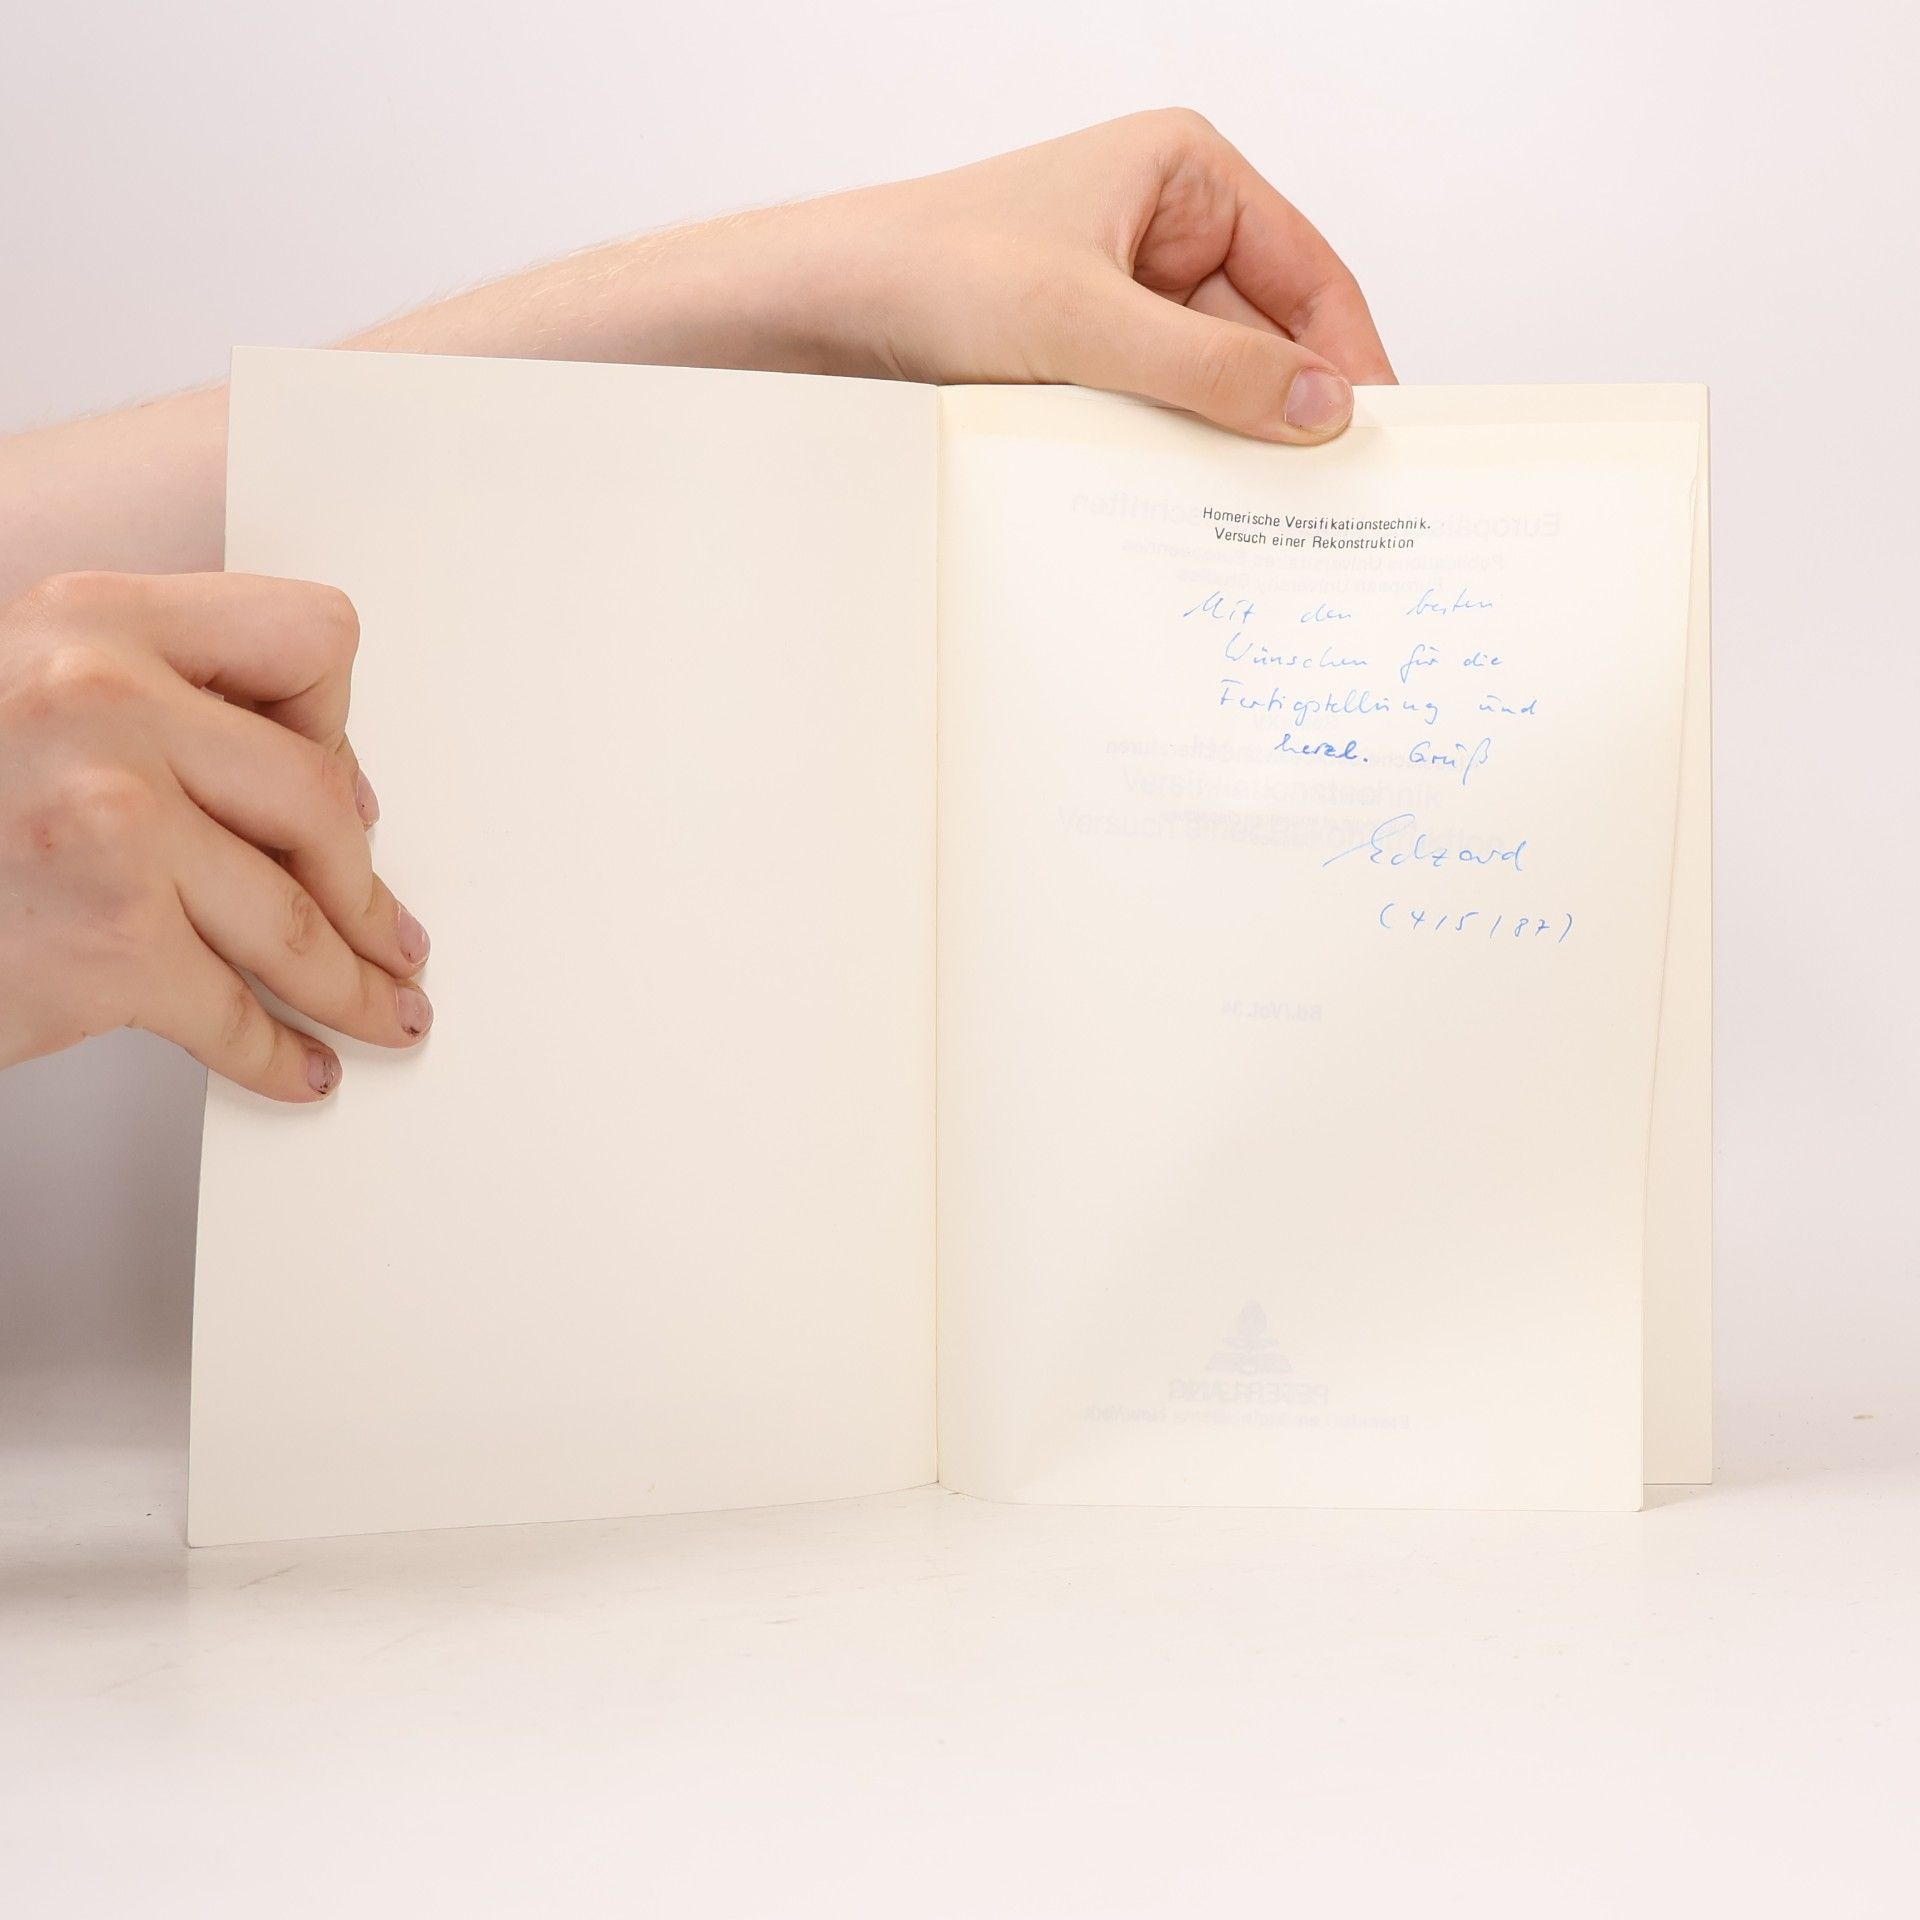 Homerische Versifikationstechnik.
Versuch einer Rekonstruktion
Mit den besten
Wünschen für die
Fertigstellung und
herzl. Gruß
Edzard
(4/5/87)